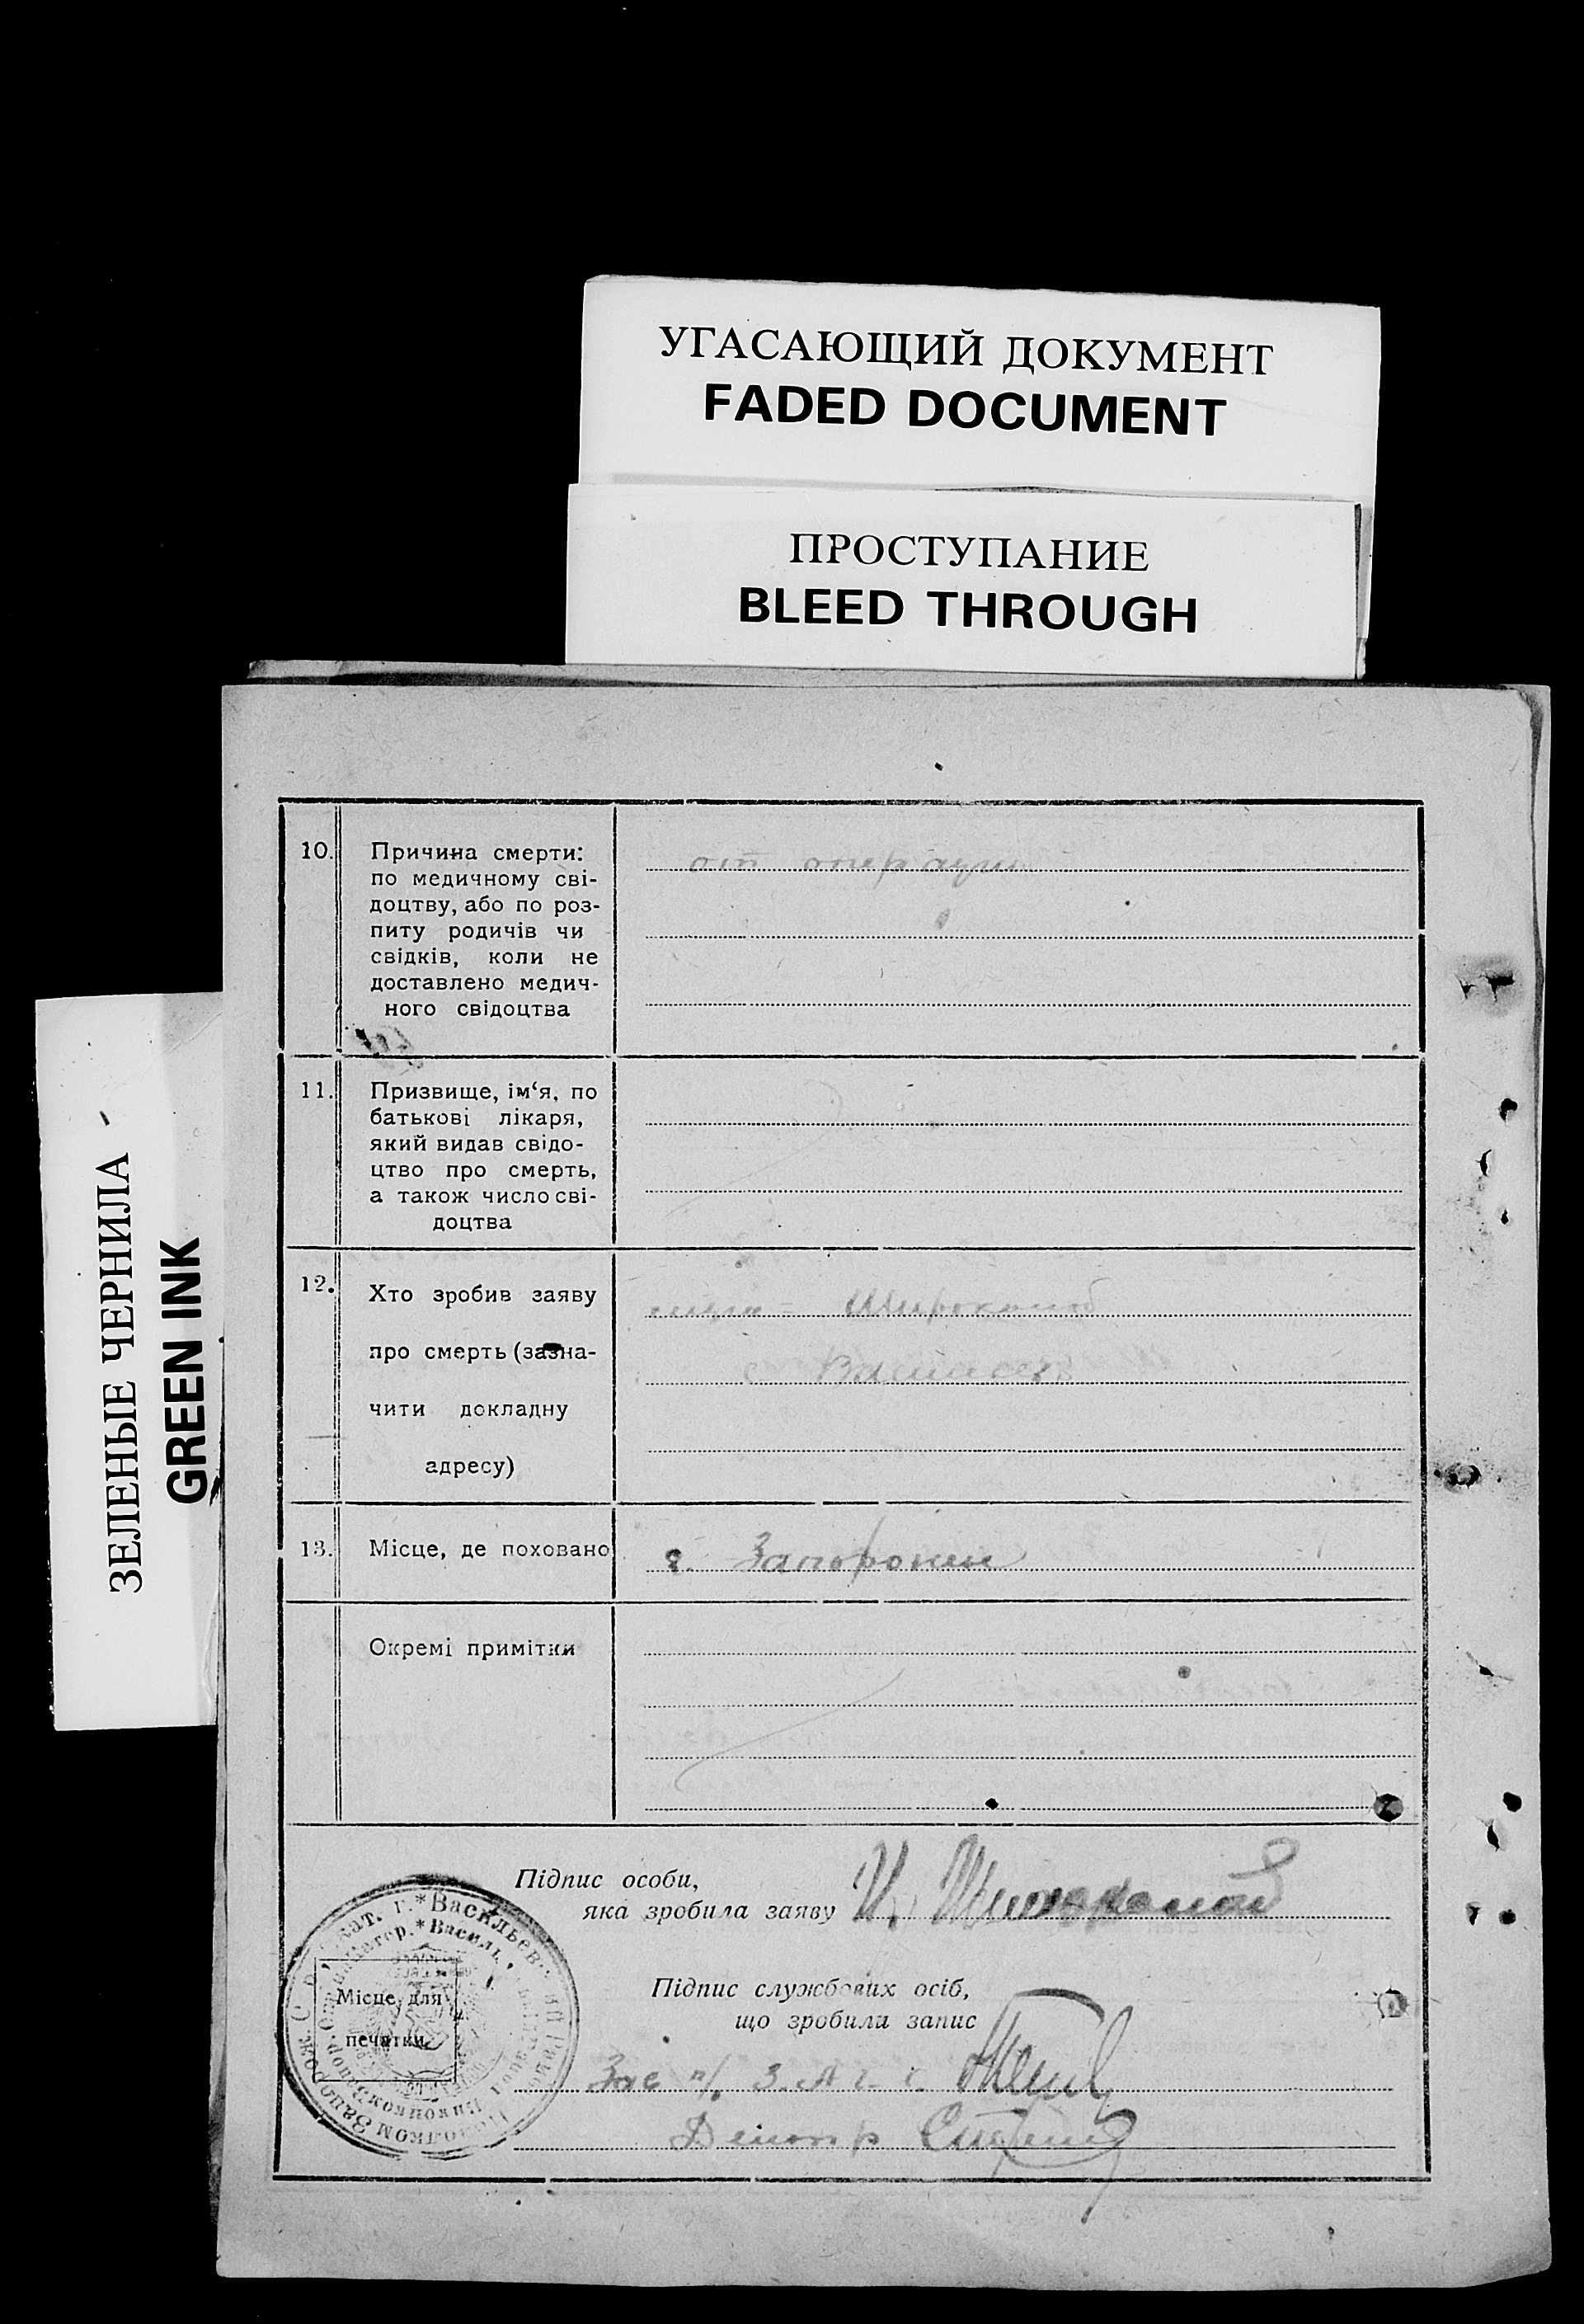 УГАСАЮЩИЙ ДОКУМЕНТ
FADED DOCUMENT
ПРОСТУПАНИЕ
BLEED THROUGH
ЗЕЛЕНЫЕ ЧЕРНИЛА
GREEN INK
10. Причина смерти:
по медичному сві-
доцтву, або по роз-
питу родичів чи
свідків, коли не
доставлено медич-
ного свідоцтва
от операции
11. Призвище, ім‘я, по
батькові лікаря,
який видав свідо-
цтво про смерть,
а також число сві-
доцтва
12. Хто зробив заяву
про смерть (зазна-
чити докладну
адресу)
Широконос
с
13. Місце, де поховано
г. Запорожье
Окремі примітки
Підпис особи,
яка зробила заяву
Підпис службових осіб,
що зробили запис
Зав
Місце для
печатки